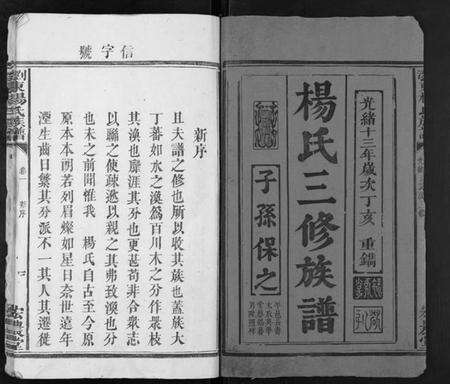 光緒十三年歲次丁亥 重鐫
楊氏三修族譜
子孫保之
信字號
新序
且夫譜之修也所以收其族也蓋族大
丁蕃如水之漢為百川木之分作眾枝
其渙也靡涯其分也更甚苟非合眾志
以聯之使疎逖以親之其弗致渙也分
也未之前聞惟我 楊氏自古至今原
原本本朗若列眉燦如星日奈世遠年
湮生齒日繁其分派不一其人其遷徙
卷一 新序